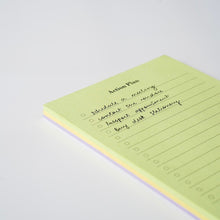 Action Plan
schedule a meeting
contact the vendors
Prepare appointment
Buy desk stationary